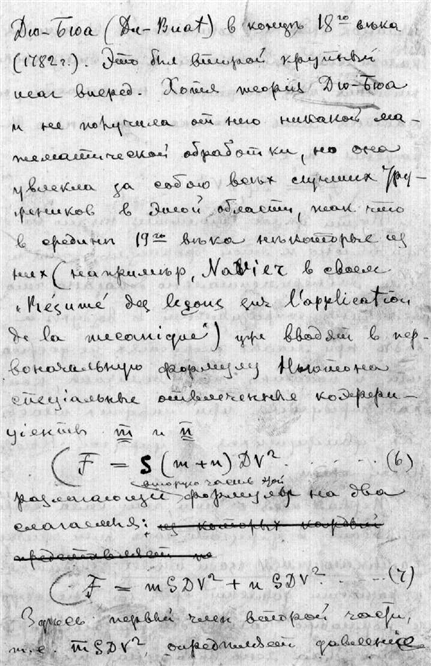 Дю-Бюа (Du-Buat) в конце 18го вѣка
(1782 г.). Это был второй крупный
шаг вперед. Хотя теория Дю-Бюа
и не получила от него никакой ма-
тематической обработки, но она
увлекла за собою всѣх лучших
в этой области, так что
в средине 19го вѣка нѣкоторые из
них (например, Navier в своем
„Résumé des leçons sur l'application
de la mecanique") уже вводят в пер-
воначальную формулу Ньютона
специальные отвлеченные коэффи-
циенты m и n
(F = S (m+n) DV² . . . . . (6)
разлагающий вторую часть формулы на два
слагаемых:
(F = mSDV² + nSDV² . . . . (7)
Здѣсь первый член второй части,
т.е. mSDV², опредѣляет давление